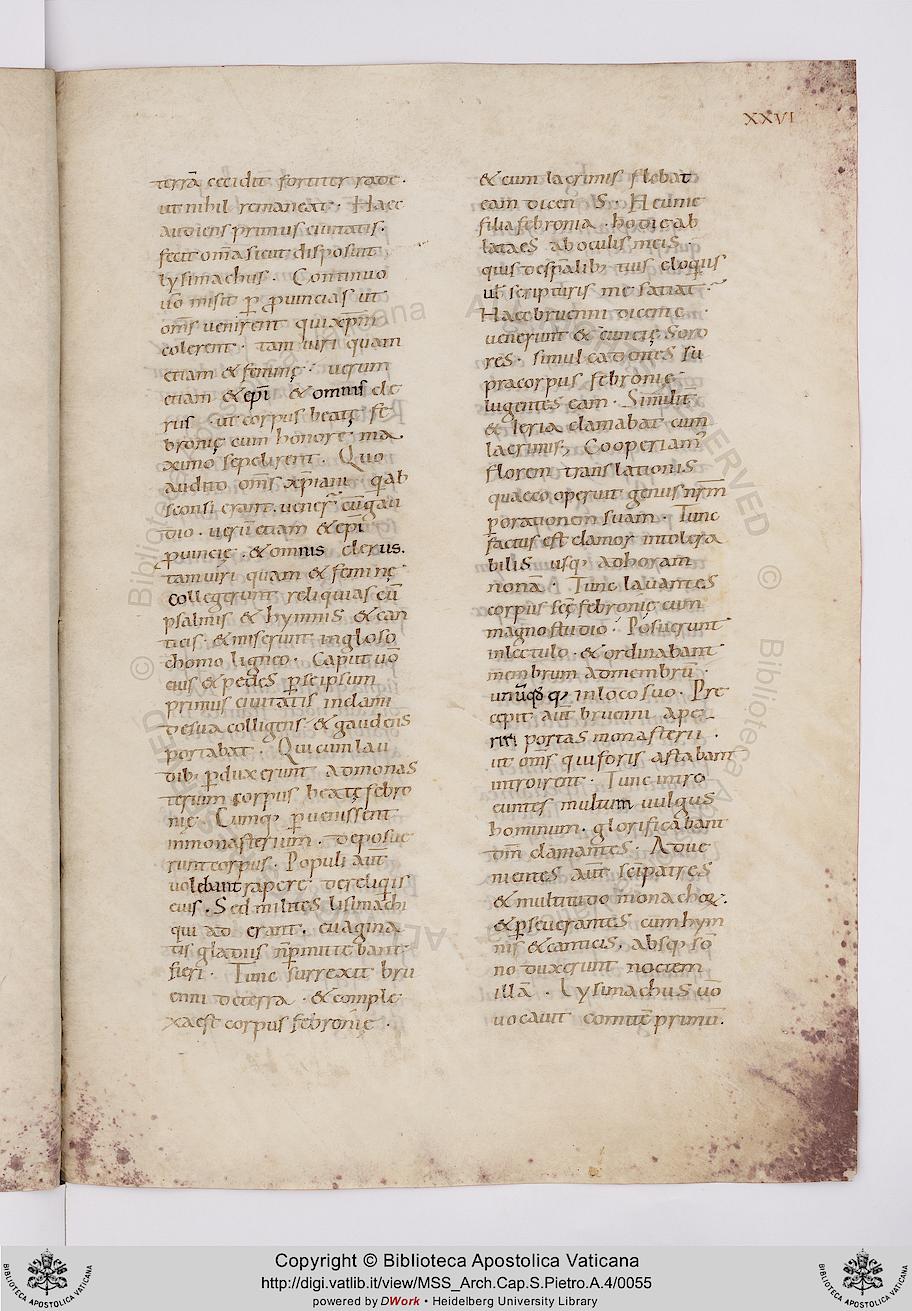 XXVI
terrā cecidit fortiter rade.
ut nihil remaneat · Haec
audiens primus ciuitatis.
fecit om̄a sicut disposuit
lysimachus. Continuo
uō misit ꝑ ꝓuincias ut
om̄s uenirent qui xp̄m
colerent · tam uiri quam
etiam & feminę · uerum
etiam & ep̄i & omnis cle
rus · ut corpus beatę fe
bronię cum honore ma
ximo sepelirent. Quo
audito om̄s xp̄iani q̄ ab
sconsi erant. uener̄ cū gau
dio. uerū etiam & ep̄i
ꝓuincię. & omnis clerus.
tam uiri quam & feminę
collegerunt reliquias eiꝰ
psalmis & hymnis & can
ticis · & miserunt in gloso
chomo ligneo · Caput uō
eius & pedes ꝑ se ipsum
primus ciuitatis in clami
de sua colligens & gaudens
portabat · Qui cum lau
dib; ꝑduxerunt ad monas
terium corpus beatę febro
nię. Cumq; ꝑuenissent
in monasterium. deposue
runt corpus. Populi aut̄
uolebant rapere de reliq̄is
eius. Sed milites lisimachi
qui ad erant. euagina
tis gladiis n̄ ꝑmittebant
fieri. Tunc surrexit bru
enni de terra. & comple
xa est corpus febronię.
& cum lacrimis flebat
eam dicen S. Heu me
filia febronia. hodie ab
lata es ab oculis meis
quis despālib; tuis eloquiis
ul̄ scripturis me satiat
Haec bruenni dicente
uenerunt & cunctę soro
res. simul cadentes su
pra corpus febronię
lugentes eam · Similit̄
& ieria clamabat cum
lacrimis; Cooperiam
florem translationis
quae cooperuit genus nr̄m
ꝑ orationem suam · Tunc
factus est clamor intolera
bilis usq; ad horam
nonā. Tunc lauantes
corpus sc̄ę febronię cum
magno studio. Posuerunt
in lectulo · & ordinabant
membrum ad membrū
unūq̄dq; in loco suo. Pre
cepit aut̄ bruenni ape
riri portas monasterii.
ut om̄s qui foris astabant
introirent. Tunc intro
euntes multum uulgus
hominum. glorificabant
dm̄ clamantes. Adue
nientes aut̄ sc̄i patres
& multitudo monachoꝝ.
& ꝑseuerantes cum hym
nis & canticis, absq; so
no duxerunt noctem
illā. Lysimachus uō
uocauit comitē primū.
Copyright © Biblioteca Apostolica Vaticana
http://digi.vatlib.it/view/MSS_Arch.Cap.S.Pietro.A.4/0055
powered by DWork • Heidelberg University Library
BIBLIOTECA APOSTOLICA VATICANA
BIBLIOTECA APOSTOLICA VATICANA